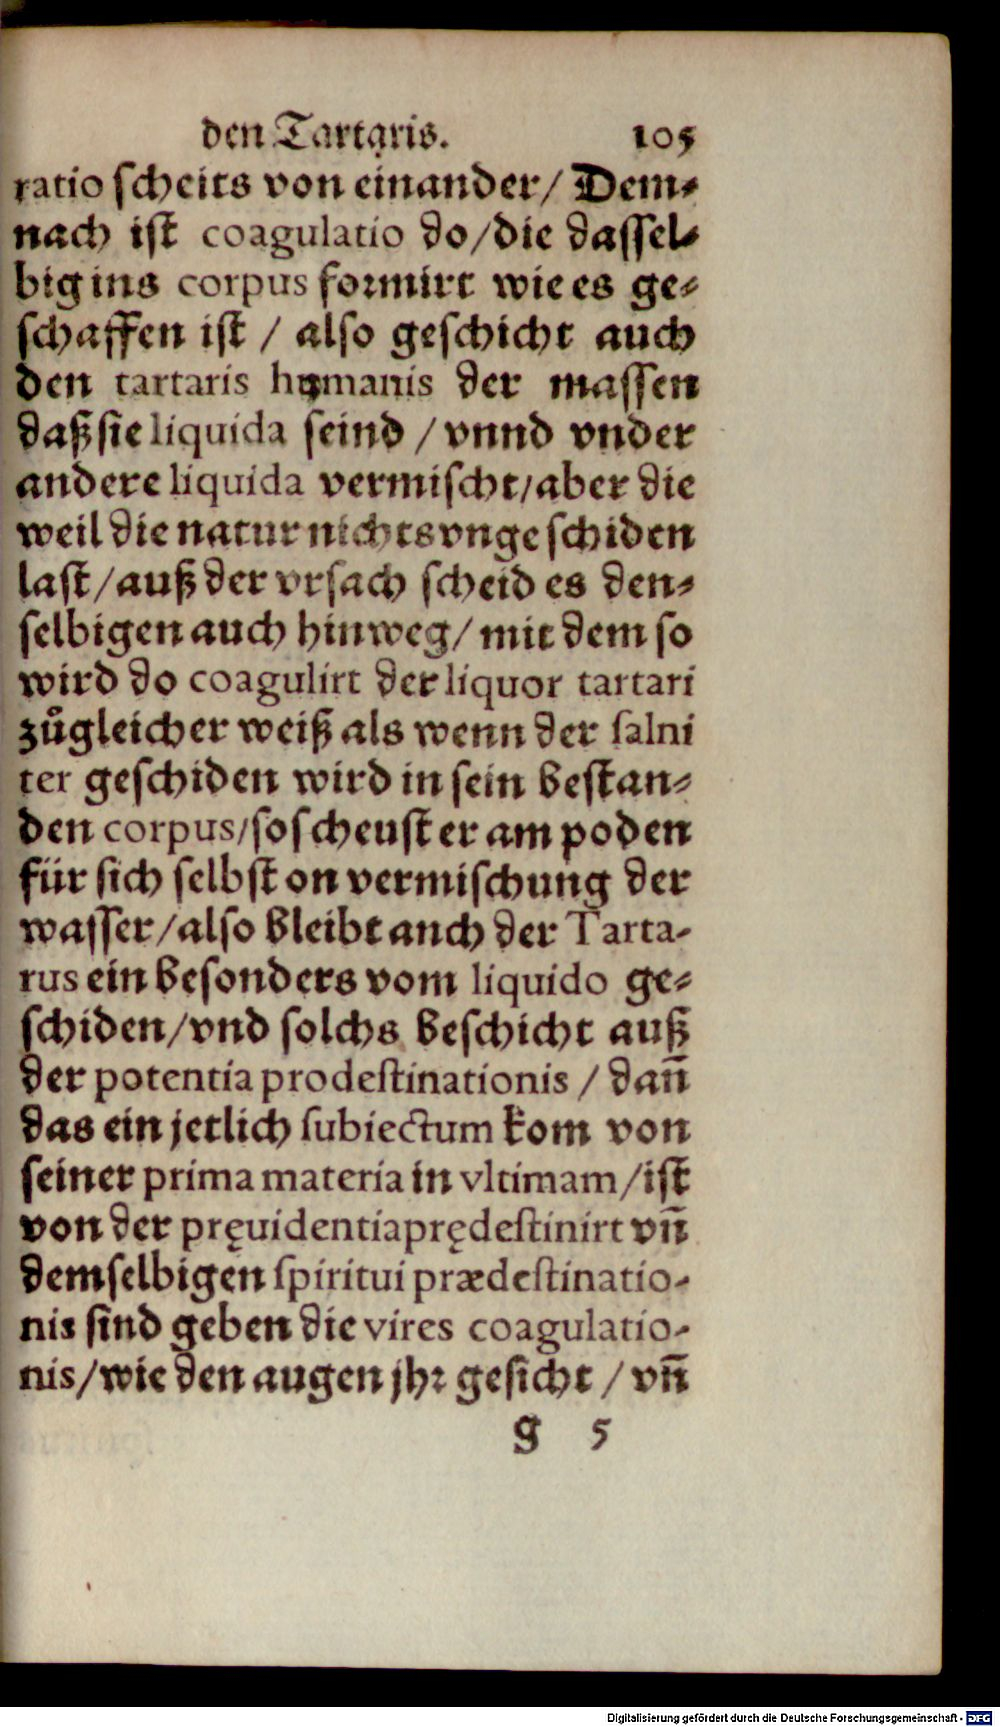 den Tartaris. 105
ratio scheits von einander/ Dem⸗
nach ist coagulatio do/die dassel⸗
big ins corpus formirt wie es ge⸗
schaffen ist / also geschicht auch
den tartaris humanis der massen
daß sie liquida seind / vnnd vnder
andere liquida vermischt/aber die
weil die natur nichts vngeschiden
last/auß der vrsach scheid es den⸗
selbigen auch hinweg/ mit dem so
wird do coagulirt der liquor tartari
zůgleicher weiß als wenn der salni
ter geschiden wird in sein bestan⸗
den corpus/so scheust er am poden
für sich selbst on vermischung der
wasser/also bleibt anch der Tarta-
rus ein besonders vom liquido ge⸗
schiden/vnd solchs beschicht auß
der potentia prodestinationis / dañ
das ein jetlich subiectum kom von
seiner prima materia in vltimam/ist
von der pręuidentia prędestinirt vñ
demselbigen spiritui prædestinatio-
nis sind geben die vires coagulatio-
nis/wie den augen jhr gesicht / vñ
g 5
Digitalisierung gefördert durch die Deutsche Forschungsgemeinschaft - DFG